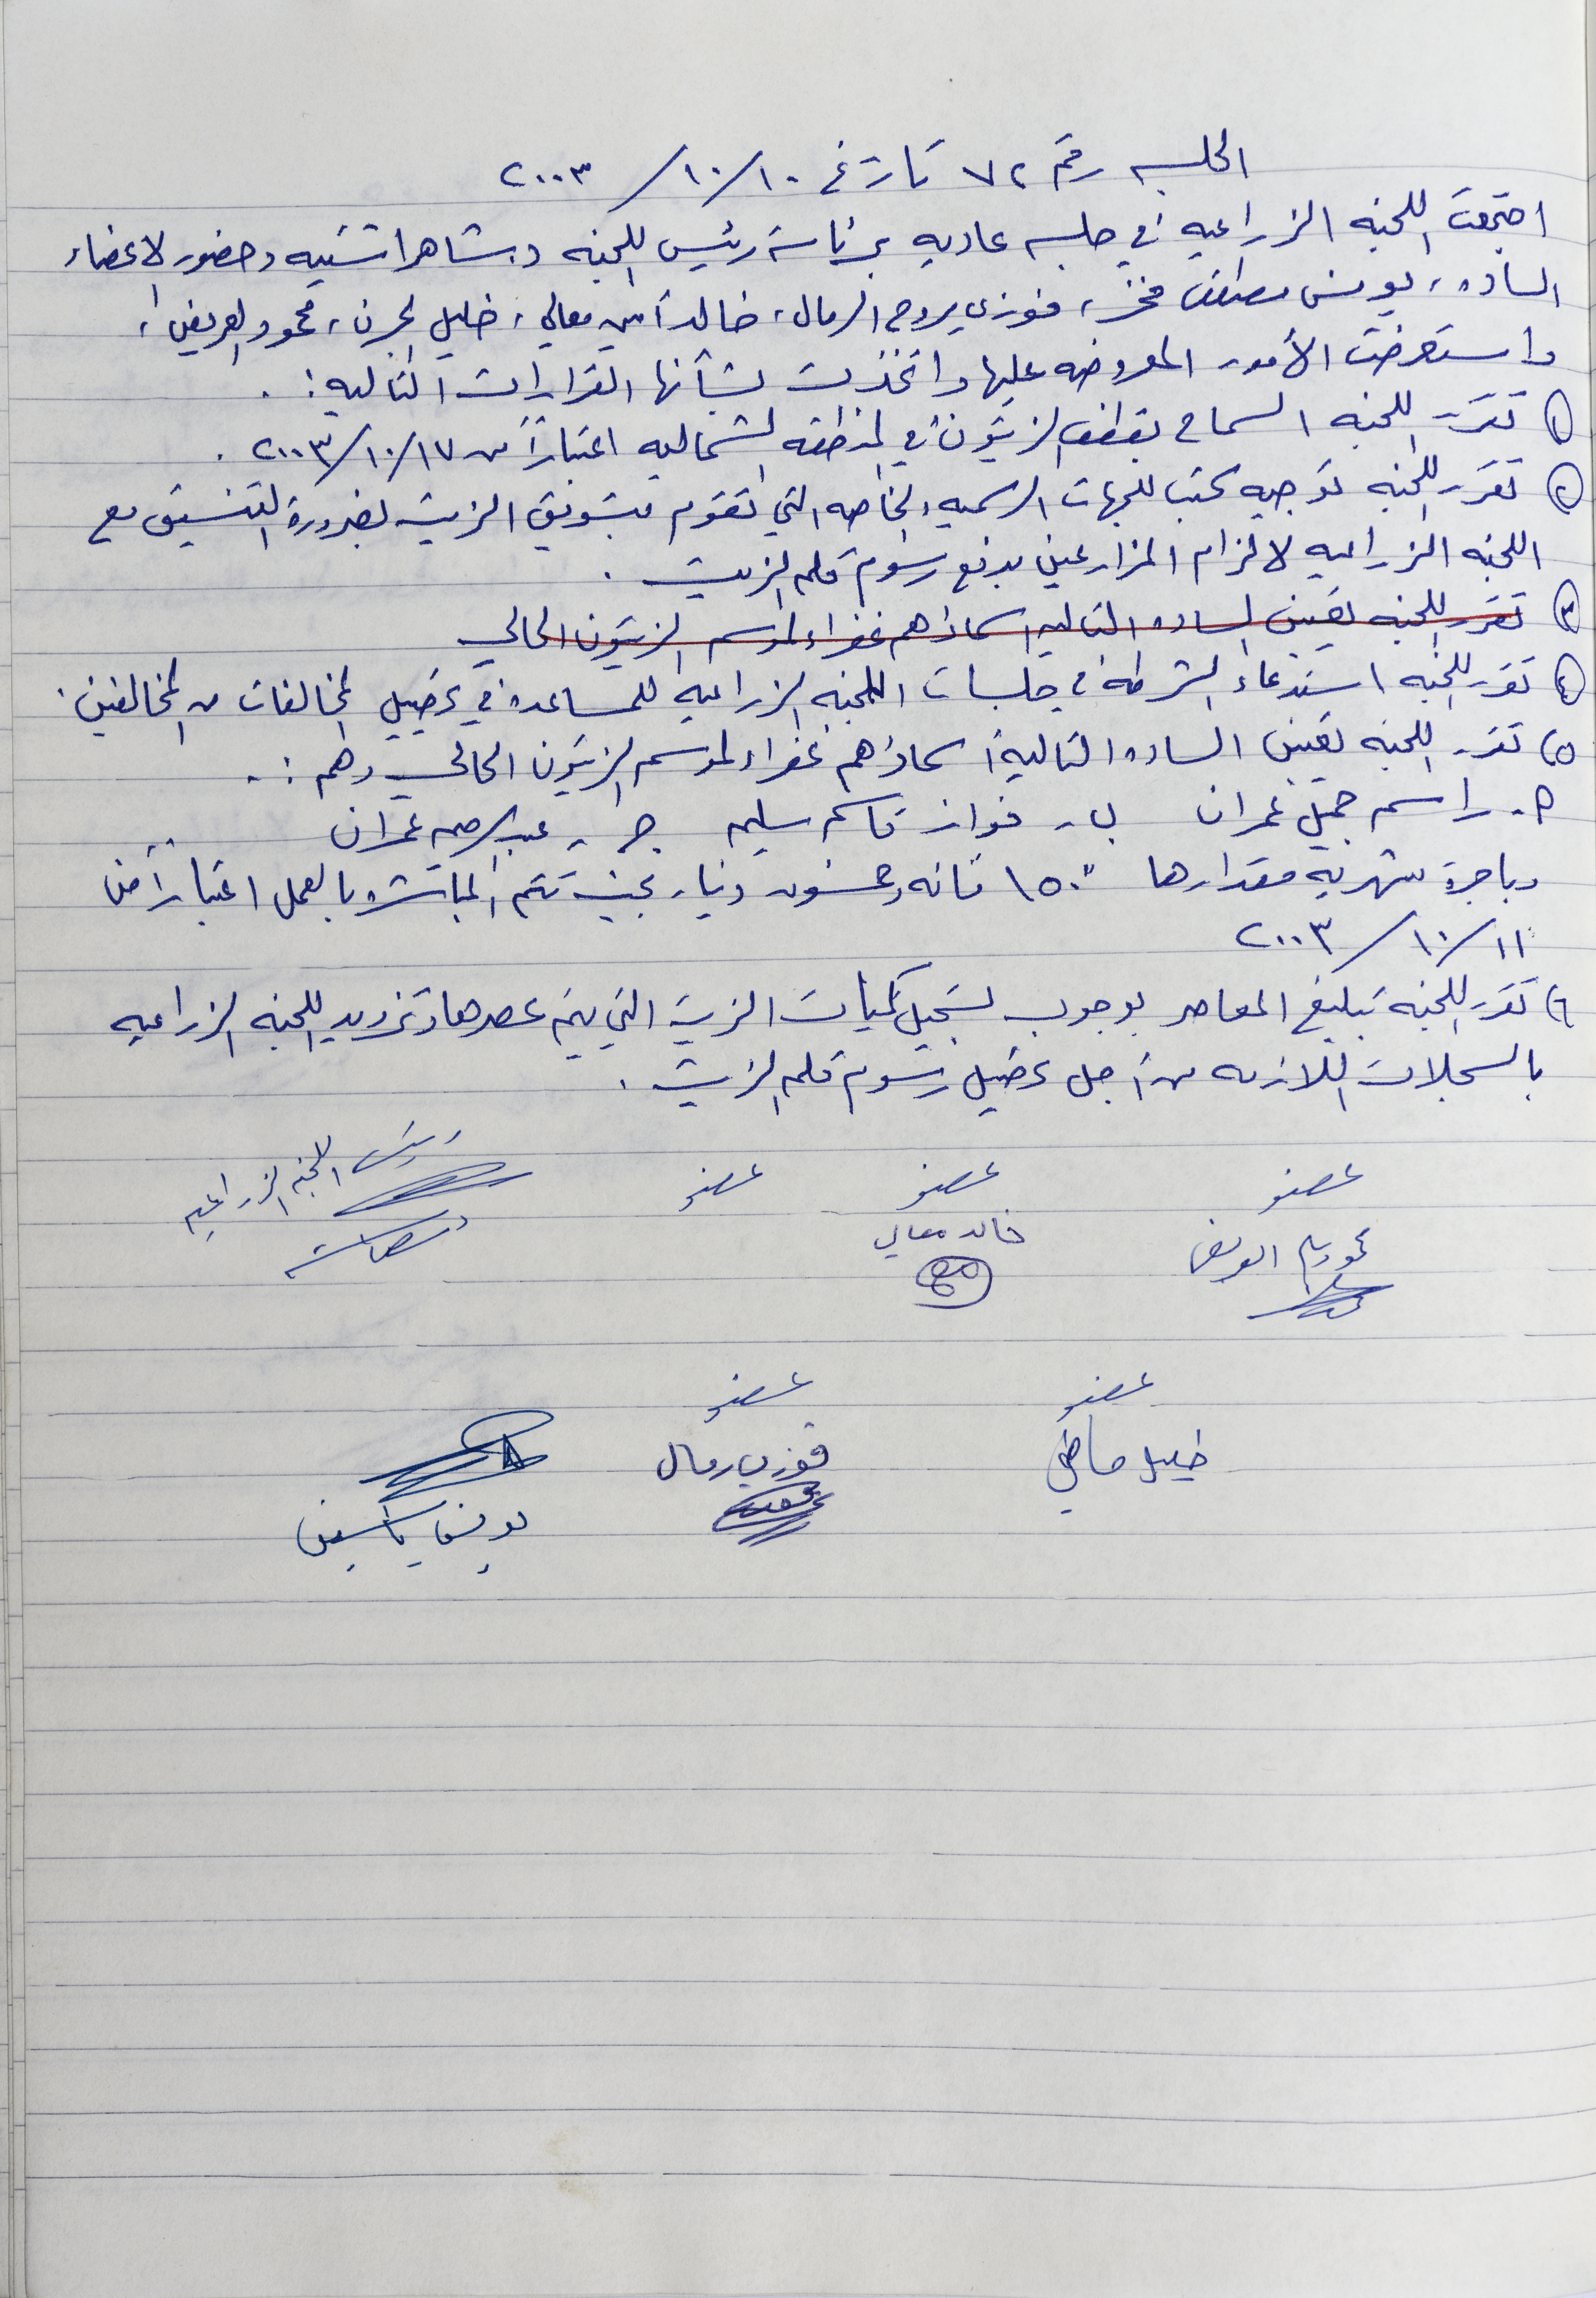 الجلسه رقم ٧٢ تاريخ ١٠/١٠/٢٠٠٣
اجتمعت اللجنه الزراعيه في جلسه عاديه برئاسة رئيس اللجنه د. شاهر اشتيه وحضور الاعضاء
الساده، يونس مصطفى ، فوزي يروح الرمال، خالد أمين معالي، خليل ، محمود العريض،
واستعرضت الأمور المعروضه عليها واتخذت بشأنها القرارات التاليه :.
١) تقرر اللجنه السماح بقطف الزيتون في المنطقه الشماليه اعتباراً من ١٧/١٠/٢٠٠٣ .
٢) تقرر اللجنه توجيه كتب للجهات الرسميه والخاصه التي تقوم بتسويق الزيت لضرورة التنسيق مع
اللجنه الزراعيه لالزام المزارعين بدفع رسوم الزيت .
٣) تقرر اللجنه تعيين الساده التاليه اسماؤهم غفراء لموسم الزيتون الحالي
٤) تقرر اللجنه استدعاء الشرطه في جلسات اللجنه الزراعيه للمساعده في تحصيل المخالفات من المخالفين .
٥) تقرر اللجنه تعيين الساده التالية اسماؤهم غفراء لموسم الزيتون الحالي وهم :.
أ. راسم جميل عمران ب. فواز قاسم سليم جـ. عبد الرحيم عمران
وباجرة شهريه مقدارها "١٥٠ مائه وخمسون دينار بحيث تتم المباشره بالعمل اعتباراً من
١١/١٠/٢٠٠٣
٦) تقرر اللجنه تبليغ المعاصر بوجوب تسجيل كميات الزيت التي يتم عصرها وتزويد اللجنه الزراعيه
بالسجلات اللازمه من أجل تحصيل رسوم الزيت .
عضو عضو عضو رئيس اللجنه الزراعيه
محمود العريض خالد معالي
عضو عضو
خليل ماضي فوزي رمال
يونس ياسين